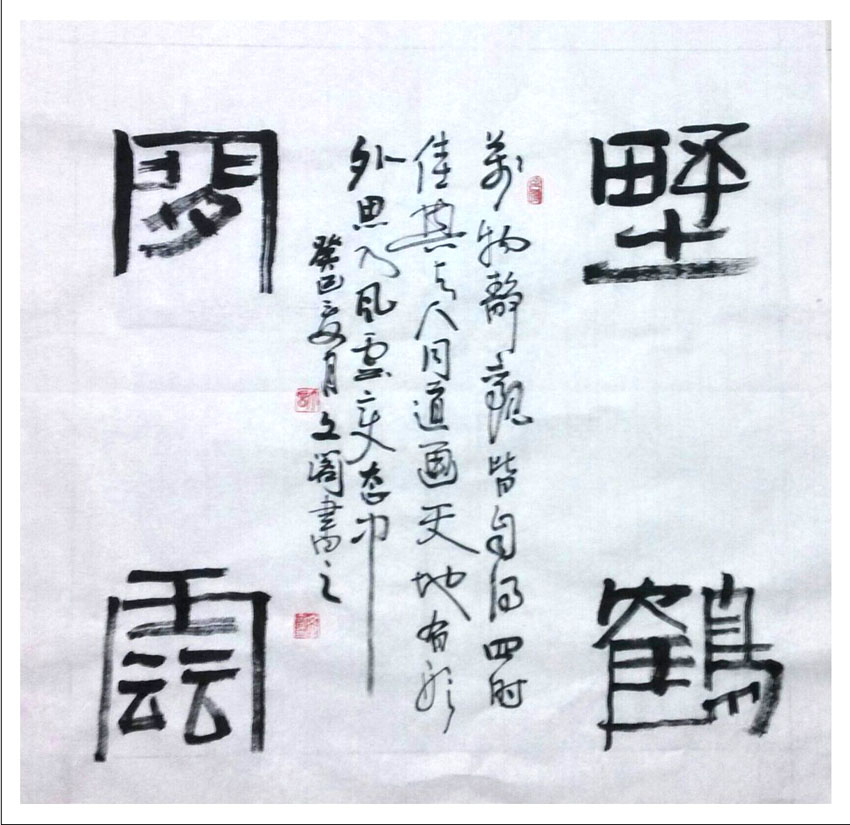 野鶴
萬物靜觀皆自得四時
佳興与人同道通天地有形
外思入風雲变态中
癸巳夏月文阁書之
閒雲